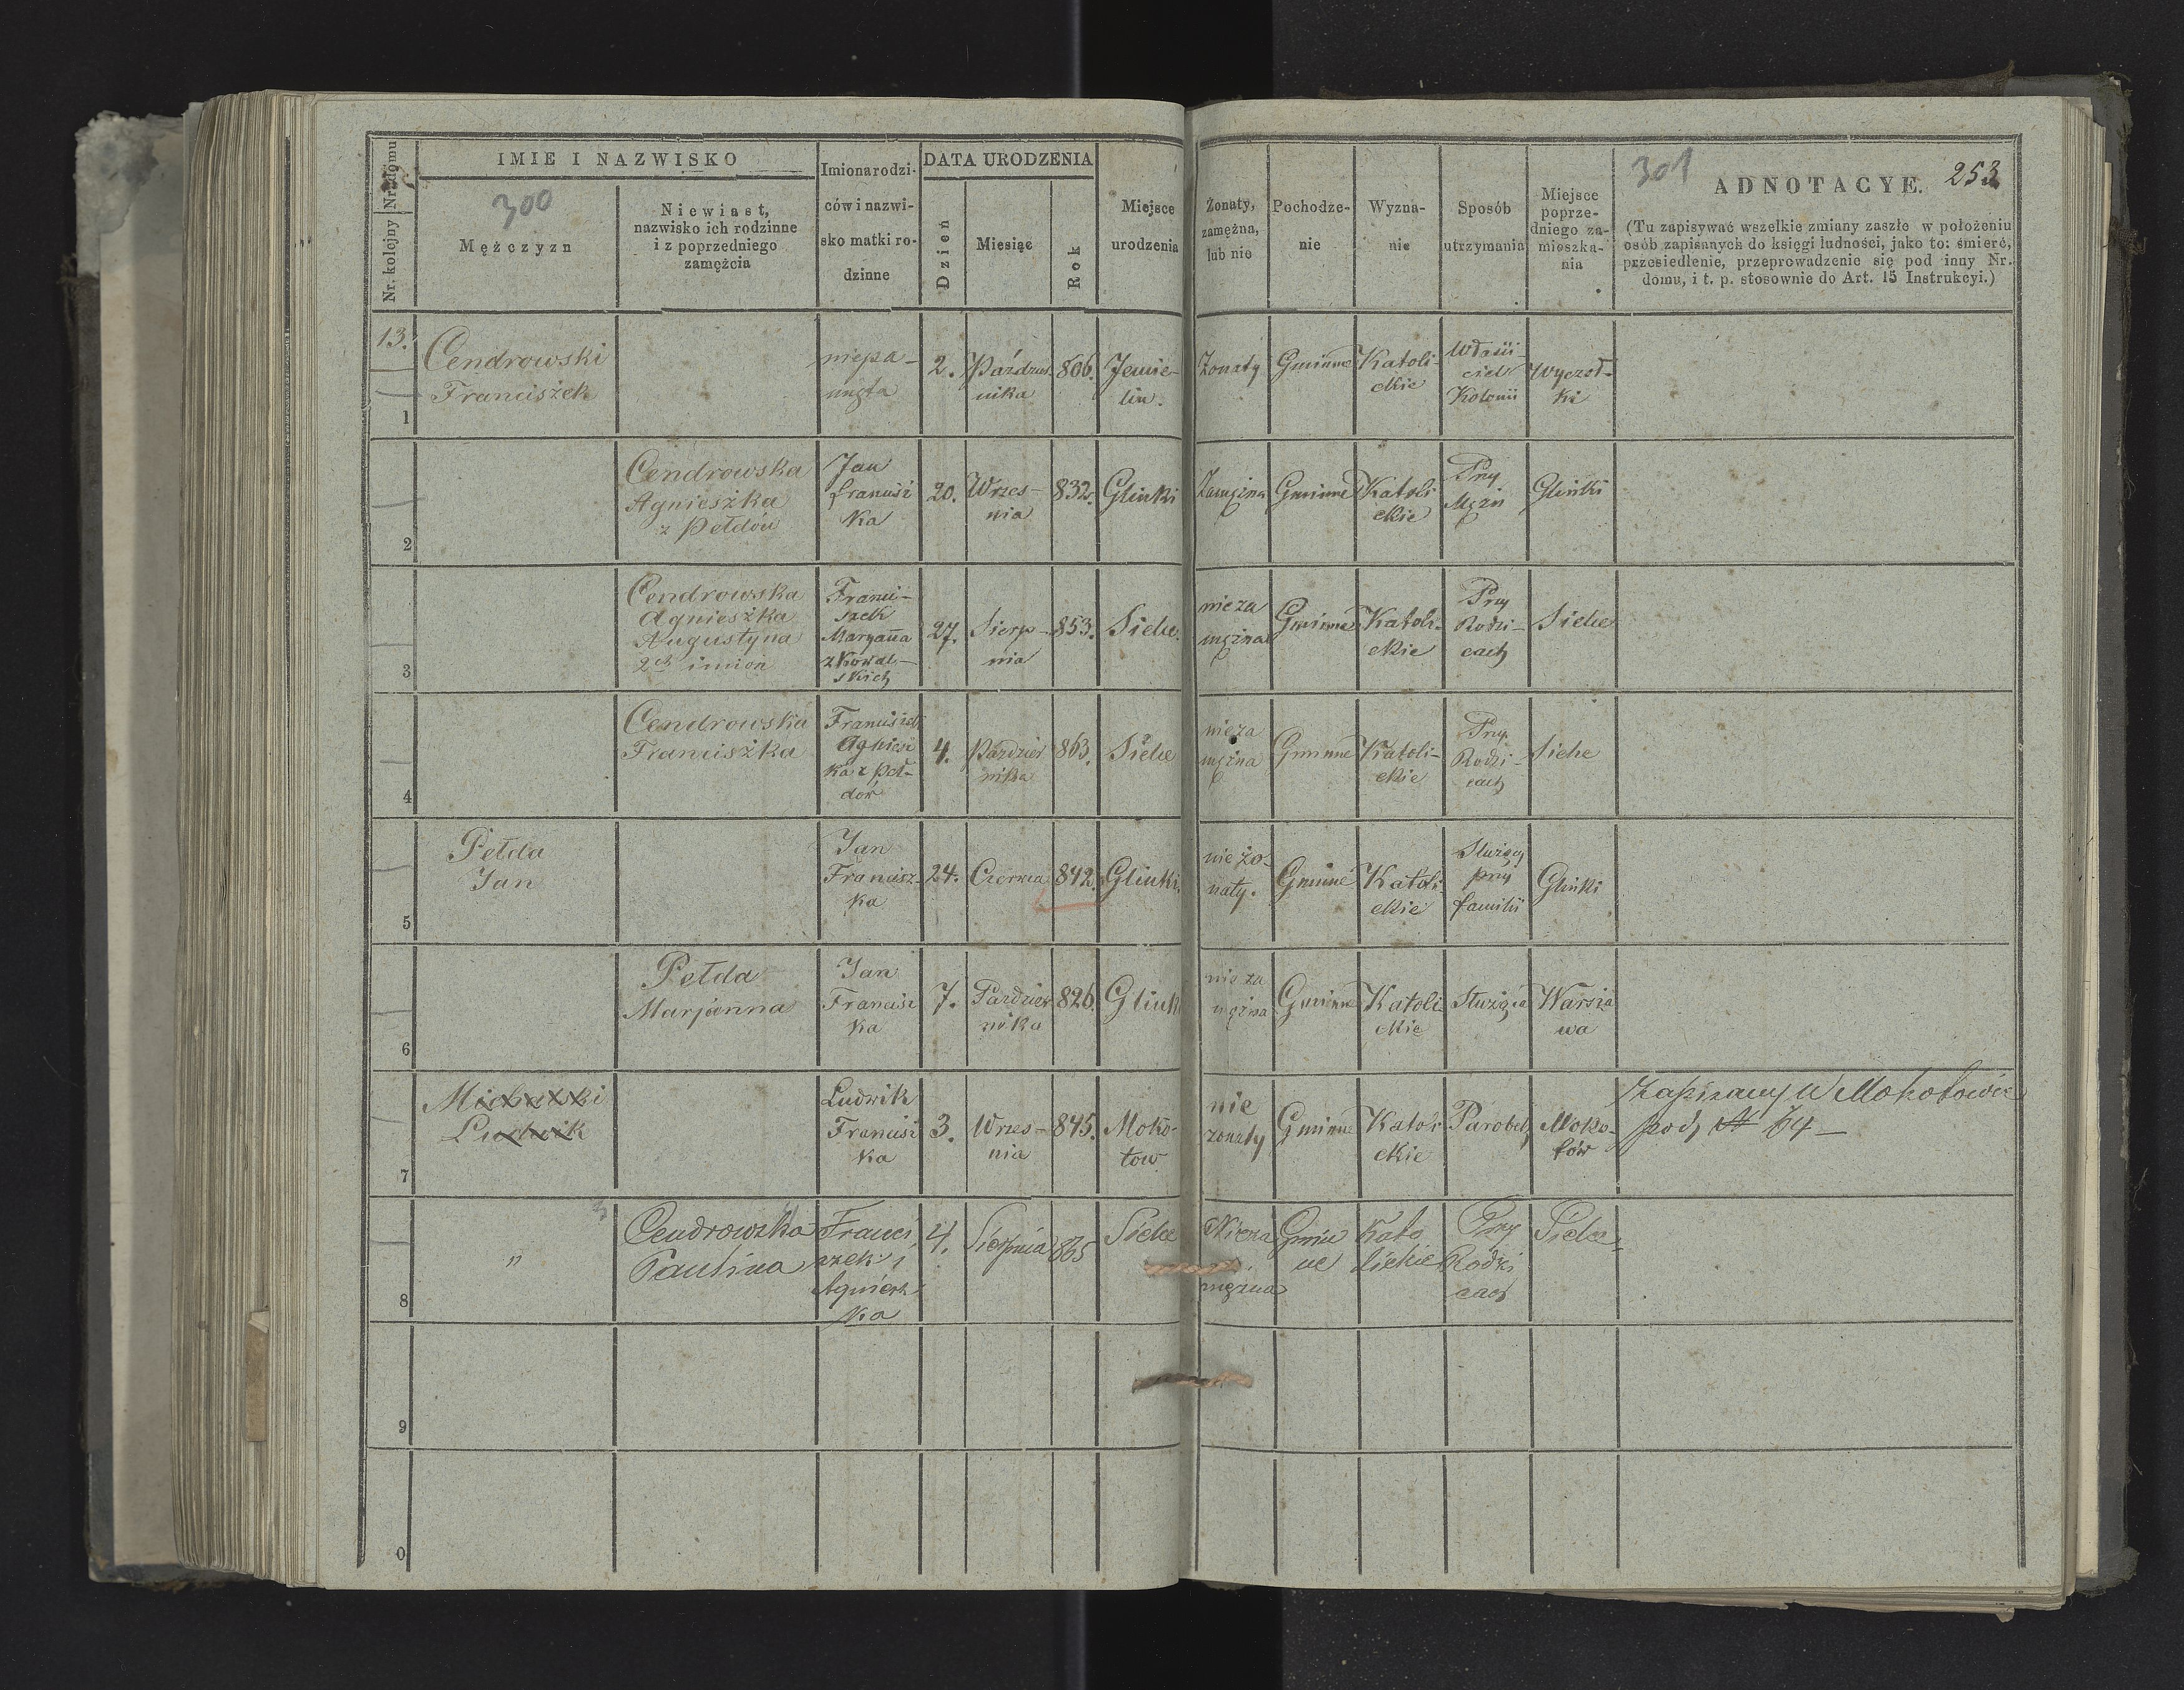 Nr. domu
Nr. kolejny
IMIE I NAZWISKO
300
Mężczyzn
Niewiast,
nazwisko ich rodzinne
i z poprzedniego
zamęźcia
Imiona rodzi-
ców i nazwi-
sko matki ro-
dzinne
DATA URODZENIA
Dzień
Miesiąc
Rok
Miejsce
urodzenia
Żonaty,
zamężna,
lub nie
Pochodze-
nie
Wyzna-
nie
Sposób
utrzymania
Miejsce
poprze-
dniego za-
mieszka-
nia
301
ADNOTACYE.
253
(Tu zapisywać wszelkie zmiany zaszłe w położeniu
osób zapisanych do księgi ludności, jako to: śmierć,
przesiedlenie, przeprowadzenie się pod inny Nr.
domu, i t. p. stosownie do Art. 15 Instrukcyi.)
13.
1
Cendrowski
Franciszek
niepa-
mięta
2.
Paździer
nika
806.
Jemie-
lin.
Żonaty
Gminne
Katoli-
ckie
Właści-
ciel
Kolonii
Wyczoł-
ki
2
Cendrowska
Agnieszka
z Pełdów
Jan
Francisz
ka
20.
Wrześ-
nia
832.
Glinki
Zamężna
Gminne
Katoli
ckie
Przy
Mężu
Glinki
3
Cendrowska
Agnieszka
Augustyna
2ch imion
Franci-
szek
Maryanna
z Kowal-
skich
27.
Sierp-
nia
853.
Sielce.
nieza
mężna
Gminne
Katoli-
ckie
Przy
Rodzi-
cach
Sielce
4
Cendrowska
Franciszka
Franciszek
Agniesz
ka z Peł-
dów
4.
Paździer
nika
863.
Sielce
nieza
mężna
Gminne
Katoli-
ckie
Przy
Rodzi-
cach
Sielce
5
Pełda
Jan
Jan
Francisz-
ka
24.
Czerwca
842.
Glinki.
nieżo-
naty.
Gminne
Katoli
ckie
Służący
przy
familii
Glinki
6
Pełda
Marjanna
Jan
Francisz
ka
7.
Paździer
nika
826.
Glinki
nieza
mężna
Gminne
Katoli-
ckie
Służąca
Warsza
wa
7
Michalski
Ludwik
Ludwik
Francisz
ka
3.
Wrześ-
nia
845.
Moko-
tow
nie
żonaty
Gminne
Katoli
ckie
Parobek
Moko-
tów
Zapisany w Mokotowie
pod № 64 –
8
"
Cendrowska
Paulina
Franci
szek i
Agniesz
ka
4.
Sierpnia
865
Sielce
Nieza
mężna
Gmin
ne
Kato
lickie
Przy
Rodzi
cach
Sielce
9
0